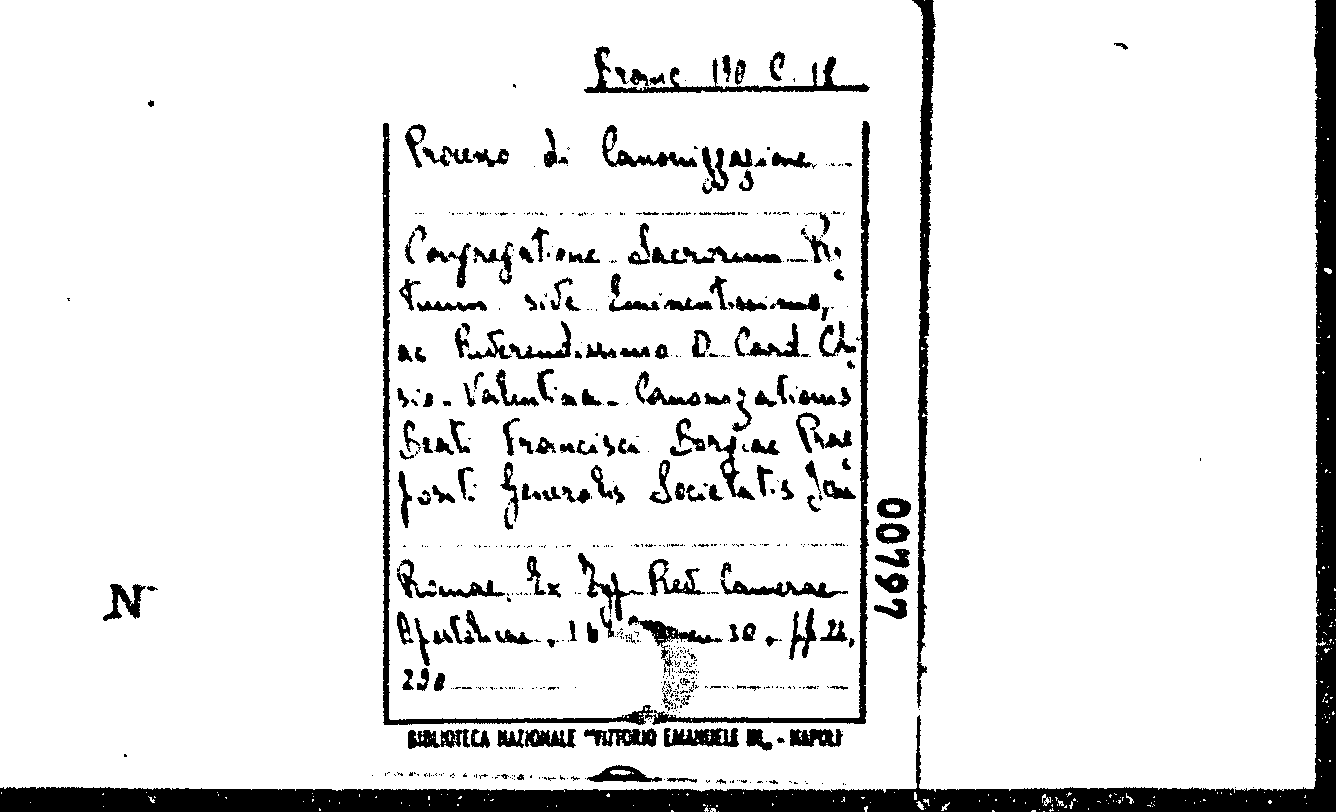 Branc. 130 C. 18
Processo di Canonizzazione
Congregatione Sacrorum Ri=
tuum sive Eminentissimo,
ac Reverendissimo D. Card. Chi=
sio - Valentina - Canonizationis
Beati Francisci Borgiae Prae=
positi Generalis Societatis Jesu
Romae, Ex Typ. Rev. Camerae
Apostolicae, 30. pp 22,
290
00797
N
BIBLIOTECA NAZIONALE "VITTORIO EMANUELE III„ - NAPOLI